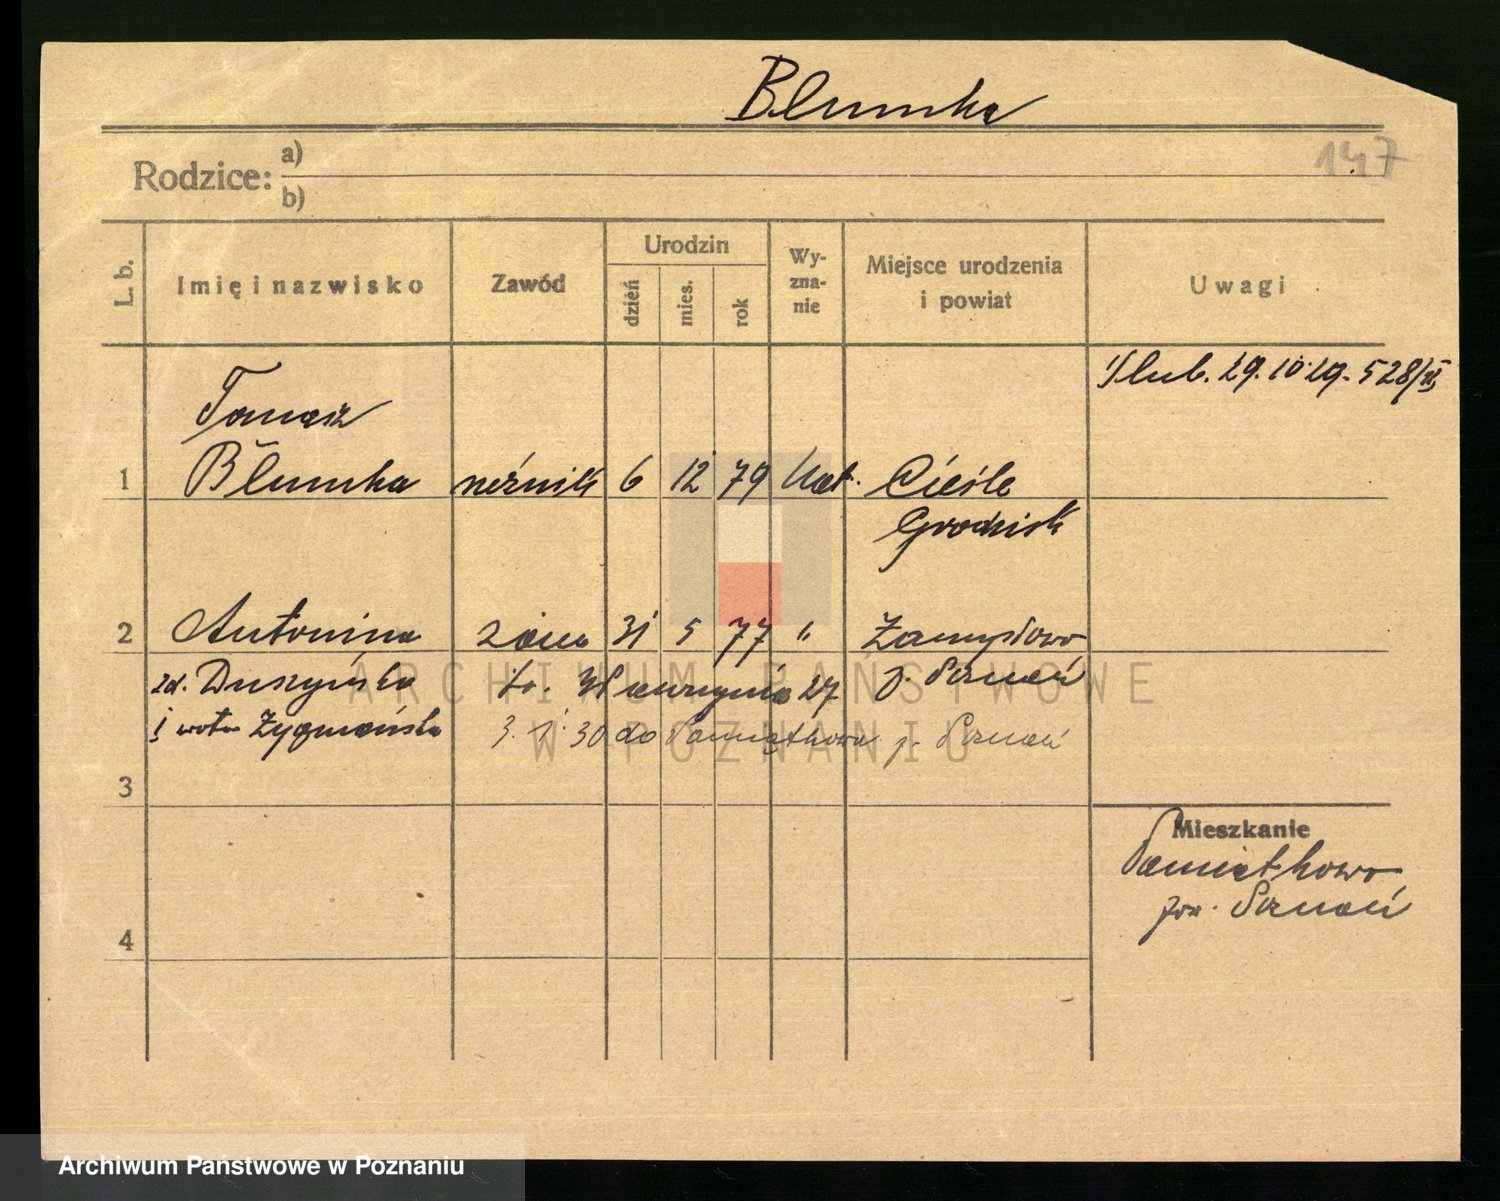 Blumka
147
Rodzice: a)
b)
L. b.
Imię i nazwisko
Zawód
Urodzin
dzień
mies.
rok
Wy-
zna-
nie
Miejsce urodzenia
i powiat
Uwagi
Ślub. 29.10.29. 528/
Tomasz
1 Blumka rzeźnik 6 12 79 kat. Cieśle
Grodzisk
2 Antonina żona 31 5 77 " Zamysłowo
zd. Duszyńska św. Wawrzyńca 27 p. Poznań
I woto Zygmańska 3. 1. 30 do Pamiątkowa p. Poznań
3
Mieszkanie
Pamiątkowo
pow. Poznań
4
ARCHIWUM PAŃSTWOWE
W POZNANIU
Archiwum Państwowe w Poznaniu